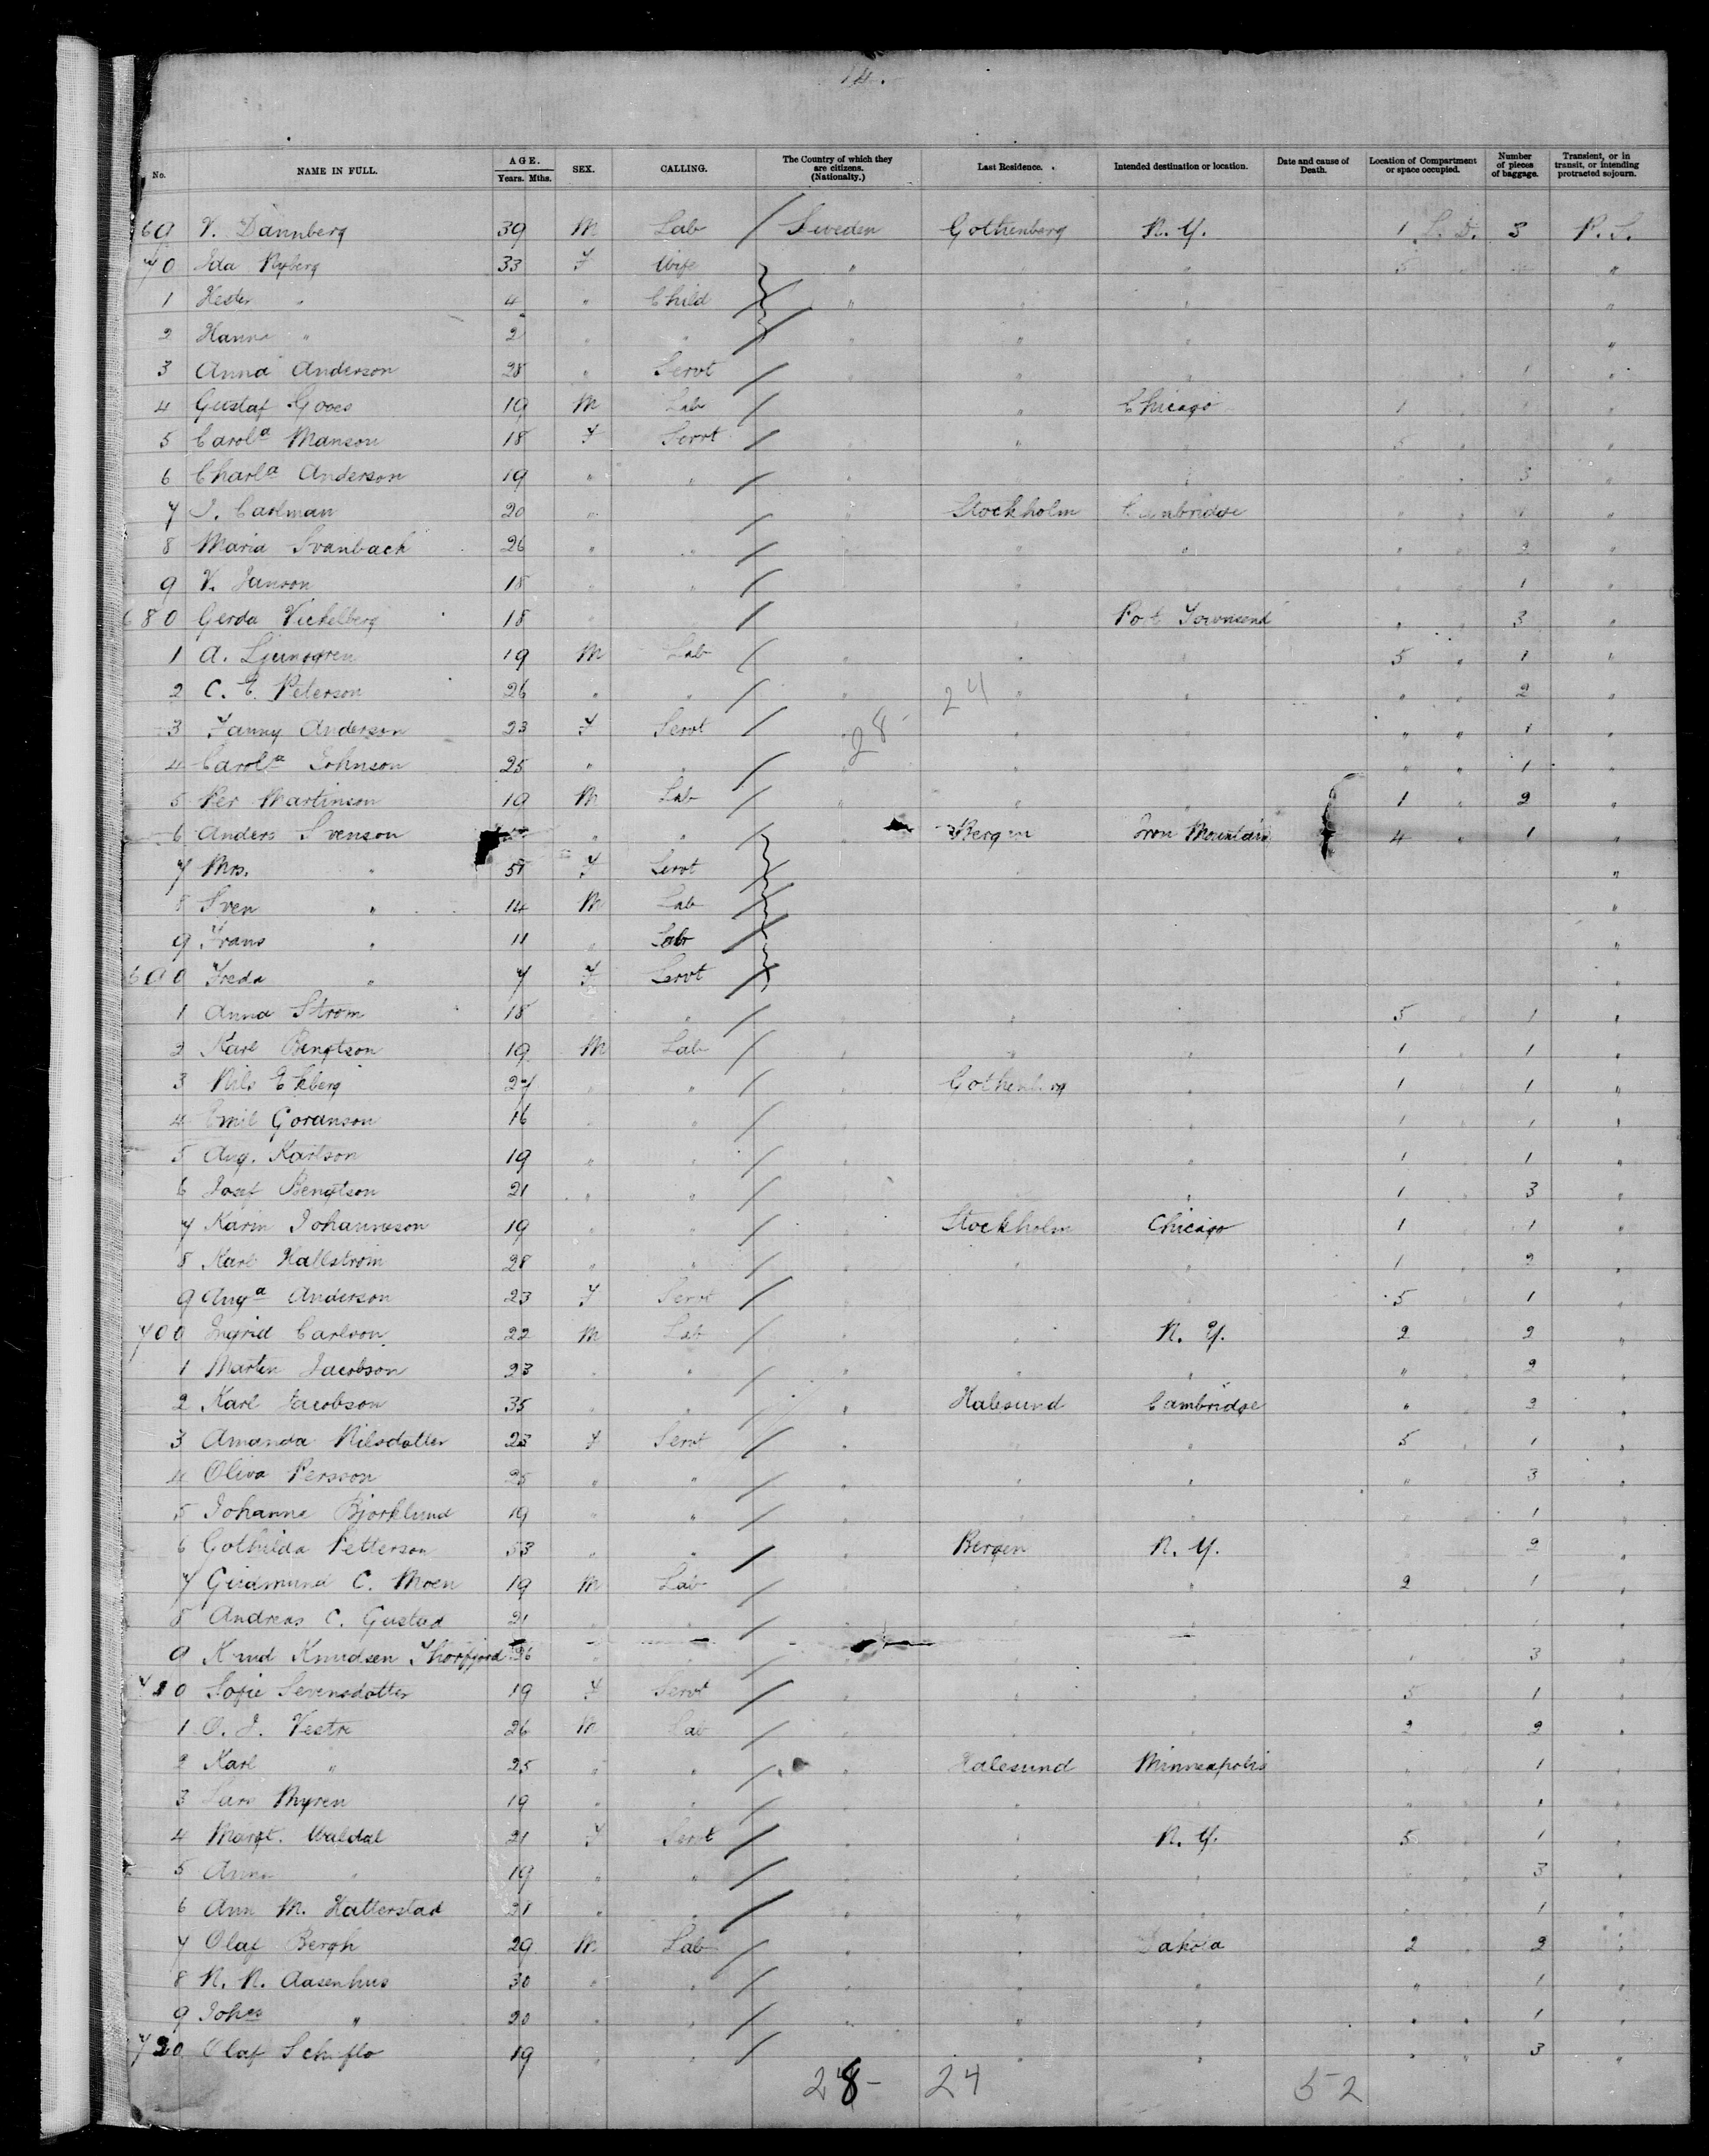 14.
No. NAME IN FULL. AGE. Years. Mths. SEX. CALLING. The Country of which they are citizens. (Nationalty.) Last Residence. Intended destination or location. Date and cause of Death. Location of Compartment or space occupied. Number of pieces of baggage. Transient, or in transit, or intending protracted sojourn.
69 V. Dannberg 39 M Lab / Sweden Gothenberg N. Y. 1 S. D. 3 P. S.
70 Ida Nyberg 33 F Wife " " 5 "
1 Hester " 4 " Child / " " " "
2 Hanna " 2 " " / " " " "
3 Anna Anderson 28 " Servt / " " " 1 "
4 Gustaf Goos 19 M Lab / " " Chicago 1 " 1 "
5 Carola Manson 18 F Servt / " " " 5 " "
6 Charla Anderson 19 " " / " " " " 3 "
7 J. Carlman 20 " " / " Stockholm Cambridge " " 1 "
8 Maria Svanbach 26 " " / " " " " " 2 "
9 V. Janson 18 " " / " " " " " 1 "
680 Gerda Vickelberg 18 " " / " " Port Townsend " " 3 "
1 A. Ljungren 19 M Lab / " " " 5 " 1 "
2 C. E. Peterson 26 " " / " 24 " " " " 2 "
3 Fanny Anderson 23 F Servt / " 28 " " " " 1 "
4 Carola Johnson 25 " " / " " " " " 1 "
5 Per Martinson 19 M Lab / " " " 1 " 2 "
6 Anders Svenson " " " Bergen Iron Mountain 4 " 1 "
7 Mrs. " 51 F Servt / "
8 Sven " 14 M Lab / "
9 Frans " 11 " Lab / "
690 Freda " 7 F Servt / "
1 Anna Strom 18 " " / " " " 5 " 1 "
2 Karl Bengtson 19 M Lab / " " " 1 " 1 "
3 Nils Ekberg 27 " " / " Gothenberg " 1 " 1 "
4 Emil Goranson 16 " " / " " " 1 " 1 "
5 Aug. Karlson 19 " " / " " " 1 " 1 "
6 Josef Bengtson 21 " " / " " " 1 " 3 "
7 Karin Johanneson 19 " " / " Stockholm Chicago 1 " 1 "
8 Karl Hallstrom 28 " " / " " " 1 " 2 "
9 Auga Anderson 23 F Servt / " " " 5 " 1 "
700 Ingrid Carlson 22 M Lab / " " N. Y. 2 " 2 "
1 Martin Jacobson 23 " " / " " " " " 2 "
2 Karl Jacobson 35 " " / " Halesund Cambridge " " 2 "
3 Amanda Nilsdotter 23 F Servt / " " " 5 " 1 "
4 Oliva Persson 25 " " / " " " " " 3 "
5 Johanna Bjorklund 19 " " / " " " " " 1 "
6 Gothilda Petterson 53 " " / " Bergen N. Y. " 2 "
7 Gudmund C. Moen 19 M Lab / " " " 2 " 1 "
8 Andreas C. Gustad 21 " " / " " " " 1 "
9 Knud Knudsen Thorfjord 36 " " / " " " " 3 "
710 Sofie Sevensdotter 19 F Servt / " " " 5 " 1 "
1 O. J. Vestre 26 M Lab / " " " 2 " 2 "
2 Karl " 25 " " / " Halesund Minneapolis " " 1 "
3 Lars Myren 19 " " / " " " " " 1 "
4 Margt. Waldal 21 F Servt / " " N. Y. 5 1 "
5 Anna " 19 " " / " " " " " 3 "
6 Ann M. Hatterstad 21 " " / " " " " " 1 "
7 Olaf Bergh 29 M Lab / " " Dakota 2 " 2 "
8 N. N. Aasenhus 30 " " / " " " " " 1 "
9 Johs " 20 " " / " " " " " 1 "
720 Olaf Schiflo 19 " " / " " " " " 3 "
28 - 24 52